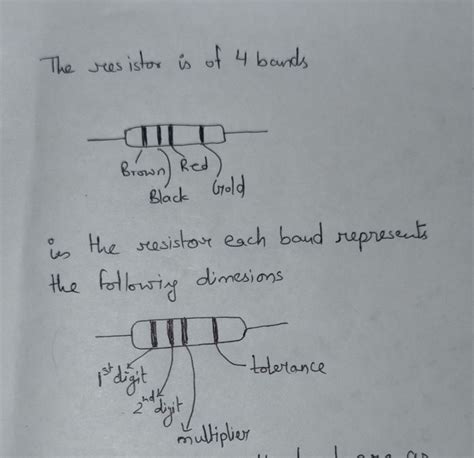 The resistor is of 4 bands
Brown
Red
Black
Gold
in the resistor each band represents
the following dimesions
1st digit
tolerance
2nd digit
multiplier